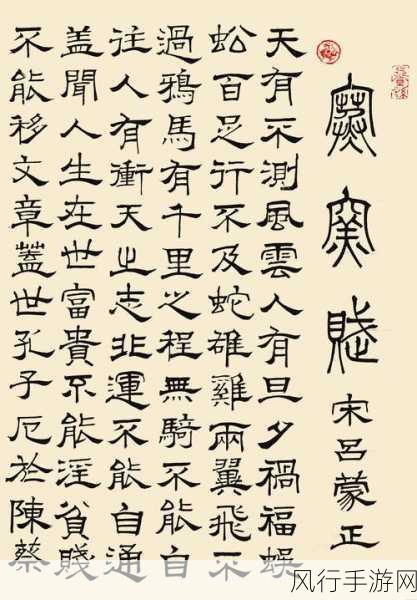 寒窯賦 宋呂蒙正
天有不測風雲人有旦夕禍福蜈
蚣百足行不及蛇雄雞兩翼飛不
過鴉馬有千里之程無騎不能自
往人有衝天之志非運不能自通
盖聞人生在世富貴不能淫貧賤
不能移文章蓋世孔子厄於陳蔡
风行手游网